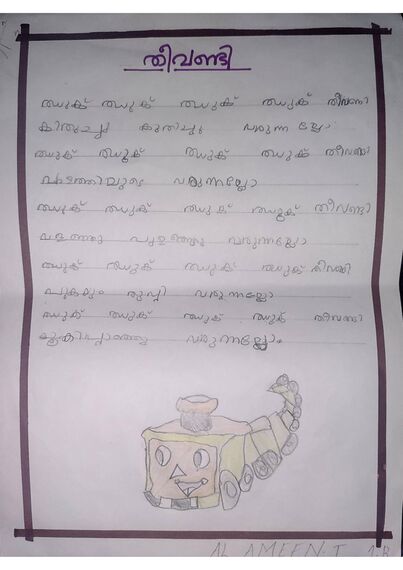 തീവണ്ടി
ഝുക് ഝുക് ഝുക് ഝുക് തീവണ്ടി
കിതച്ചു കുതിച്ചു വരുന്നല്ലോ
ഝുക് ഝുക് ഝുക് ഝുക് തീവണ്ടി
പാടത്തിലൂടെ വരുന്നല്ലോ
ഝുക് ഝുക് ഝുക് ഝുക് തീവണ്ടി
വളഞ്ഞു പുളഞ്ഞു വരുന്നല്ലോ
ഝുക് ഝുക് ഝുക് ഝുക് തീവണ്ടി
പുകയും തുപ്പി വരുന്നല്ലോ
ഝുക് ഝുക് ഝുക് ഝുക് തീവണ്ടി
കൂകിപ്പാഞ്ഞു വരുന്നല്ലോ
AL AMEEN.T 1.B